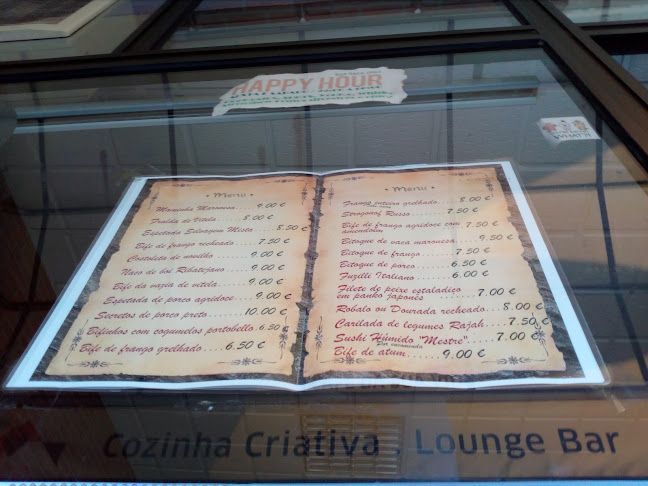 HAPPY HOUR
• Menu •
Maminha Maronesa............9.00 €
Fralda de Vitela............8.00 €
Espetada Selvagem Mista......8.50 €
Bife de frango recheado......7.50 €
Costoleta de novilho.........9.00 €
Naco de boi Ribatejano.......9.00 €
Bife de vazia de vitela......9.00 €
Espetada de porco agridoce...9.00 €
Secretos de porco preto......10.00 €
Bifinhos com cogumelos portobello.6.50 €
Bife de frango grelhado......6.50 €
• Menu •
Frango inteiro grelhado.....8.00 €
Strogonof Russo.........7.50 €
Bife de frango agridoce com
amendoim.......7.50 €
Bitoque de vaca maronesa....9.50 €
Bitoque de frango.......7.50 €
Bitoque de porco........6.50 €
Fuzilli Italiano........6.00 €
Filete de peixe estaladiço
em panko japonês........7.00 €
Robalo ou Dourada recheado...8.00 €
Carilada de legumes Rajah....7.50 €
Sushi Húmido "Mestre".....7.00 €
Por encomenda
Bife de atum......9.00 €
Cozinha Criativa . Lounge Bar